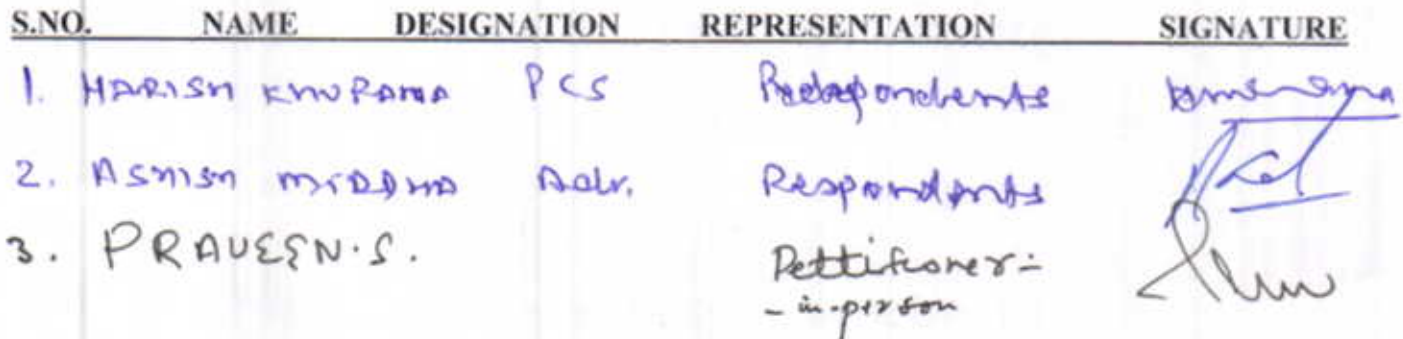 S.NO. NAME DESIGNATION REPRESENTATION SIGNATURE
1. HARISH KHURANA PCS Respondents
2. ASHISH MIDDHA Adv. Respondents
3. PRAVEEN.S. Pettitioner-
- in-person